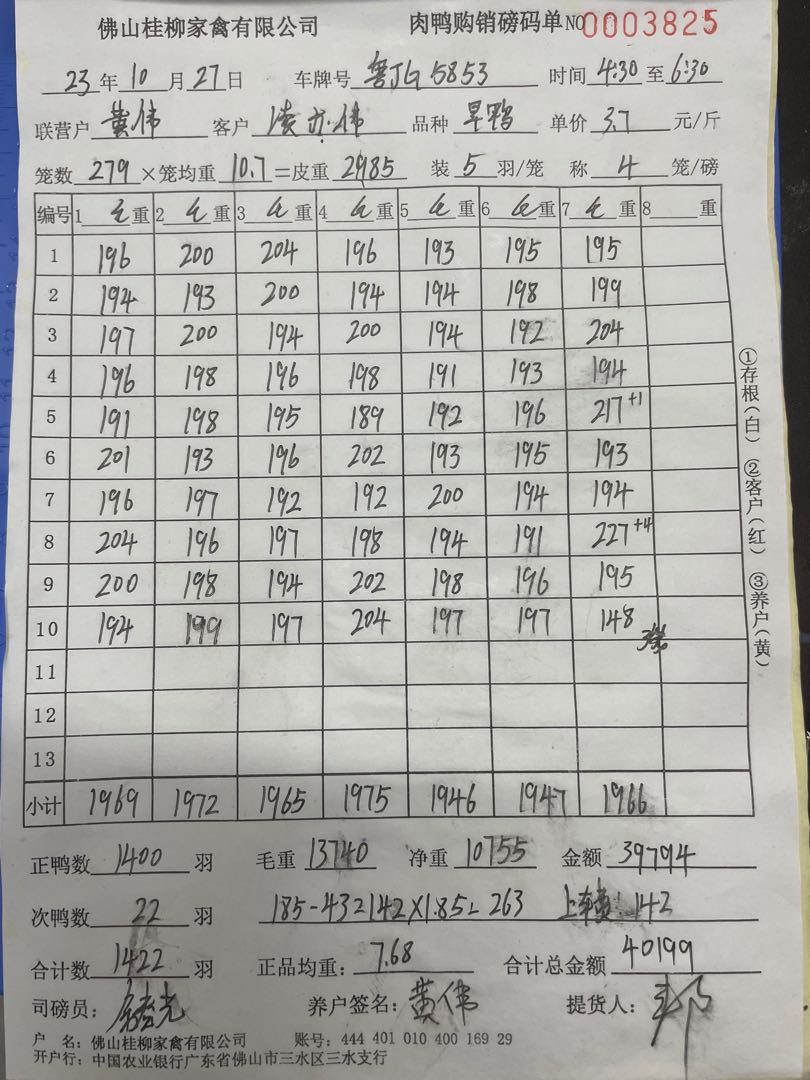 佛山桂柳家禽有限公司 肉鸭购销磅码单 NO 0003825
23 年 10 月 27 日 车牌号 粤JG5853 时间 4:30 至 6:30
联营户 黄伟 客户 品种 旱鸭 单价 3.7 元/斤
笼数 279 ×笼均重 10.7 =皮重 2985 装 5 羽/笼 称 4 笼/磅
编号 1 毛 重 2 毛 重 3 毛 重 4 毛 重 5 毛 重 6 毛 重 7 毛 重 8 重
1 196 200 204 196 193 195 195
2 194 193 200 194 194 198 199
3 197 200 194 200 194 192 204
4 196 198 196 198 191 193 194
5 191 198 195 189 192 196 217+1
6 201 193 196 202 193 195 193
7 196 197 192 192 200 194 194
8 204 196 197 198 194 191 227+4
9 200 198 194 202 198 196 195
10 194 199 197 204 197 197 148
11
12
13
小计 1969 1972 1965 1975 1946 1947 1966
①存根(白) ②客户(红) ③养户(黄)
正鸭数 1400 羽 毛重 13740 净重 10755 金额 39794
次鸭数 22 羽 185-43=142×1.85=263 上车费:142
合计数 1422 羽 正品均重: 7.68 合计总金额 40199
司磅员: 养户签名: 黄伟 提货人:
户 名: 佛山桂柳家禽有限公司 账号: 444 401 010 400 169 29
开户行: 中国农业银行广东省佛山市三水区三水支行